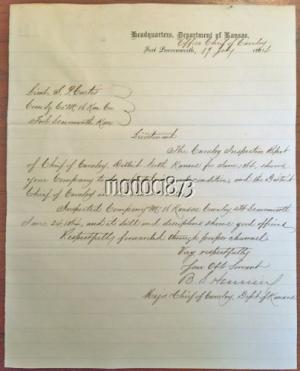 Headquarters, Department of Kansas,
Office Chief of Cavalry
Fort Leavenworth, 19 July 186
Lieut. S.
Com'dg Co "M" 16 Kan Cav
Fort Leavenworth Kan
Lieutenant
The Cavalry Inspection Report
of Chief of Cavalry, District North Kansas for June shows
your Company to be condition, and the District
Chief of Cavalry
Inspected Company "M" 16 Kansas Cavalry at Leavenworth
June 24 and its drill and discipline show good officers
Respectfully forwarded through proper channels
Very respectfully
Your Obt Servant
B. S. Henning
Major & Chief of Cavalry, Dept of Kansas
modoc1873